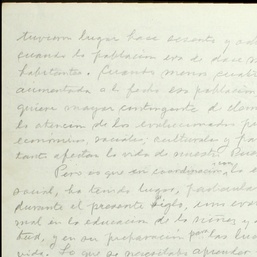 tuvieron lugar hace sesenta y
cuando la población era de doce m
habitantes. Cuando menos
aumentada a la fecha esa población
quiera mayor contingente de elem
la atención de los
economico, sociales, culturales y
tanto afectan la vida de nuestra
Pero es que sin coordinación, la
social, ha tenido lugar, particular
durante el presente siglo, una
mal en la educación de la niñez y
tud, y en su preparación para la
vida. Lo que se necesitaba aprender